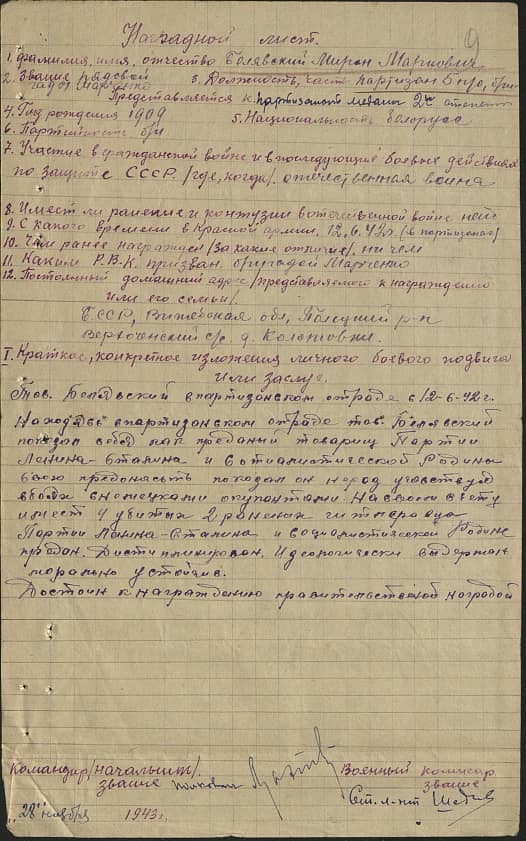 9
Наградной лист.
1. Фамилия, имя, отчество Болявский Мирон Маркович
2. Звание рядовой 3. Должность, часть партизан
Представляется к партизанской медали 2й степени
4. Год рождения 1909 5. Национальность белорус
6. Партийность б/п
7. Участие в гражданской войне и в последующих боевых действиях
по защите СССР /где, когда/. отечественная война
8. Имеет ли ранение и контузии в отечественной войне нет
9. С какого времени в Красной армии. 12.6.42г. (в партизанах)
10. Чем ранее награжден /за какие отличие/. ни чем
11. Каким Р.В.К. призван. бригадой Марченко
12. Постоянный домашний адрес /представляемого к награждению
или его семьи/.
БССР, Витебская обл, Полоцкий р-н
с/с д.
I. Краткое, конкретное изложения личного боевого подвига
или заслуг.
Тов. Белявский в партизанском отряде с 12-6-42г.
Находясь в партизанском отряде тов. Белявский
показал себя как преданый товарищ Партии
Ленина-Сталина и социалистической Родины
свою преданость показал он неод участвуя
в боях с немецкими окупантами. На своем счету
имеет 4 убитых 2 раненых гитлеровца
Партии Ленина-Сталина и социалистической Родине
предан. Дисциплинирован. Идеологически выдержан
морально устойчив.
Достоин к награждению правительственой наградой
Командир/начальник/. Военный комисар
звание полковник звание
Ст. л-нт
"28" ноября 1943г.